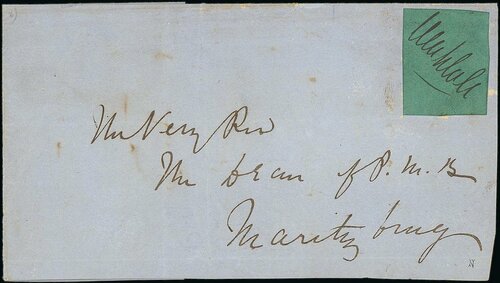 The Very Rev
The Dean of P. M. B
Maritzburg